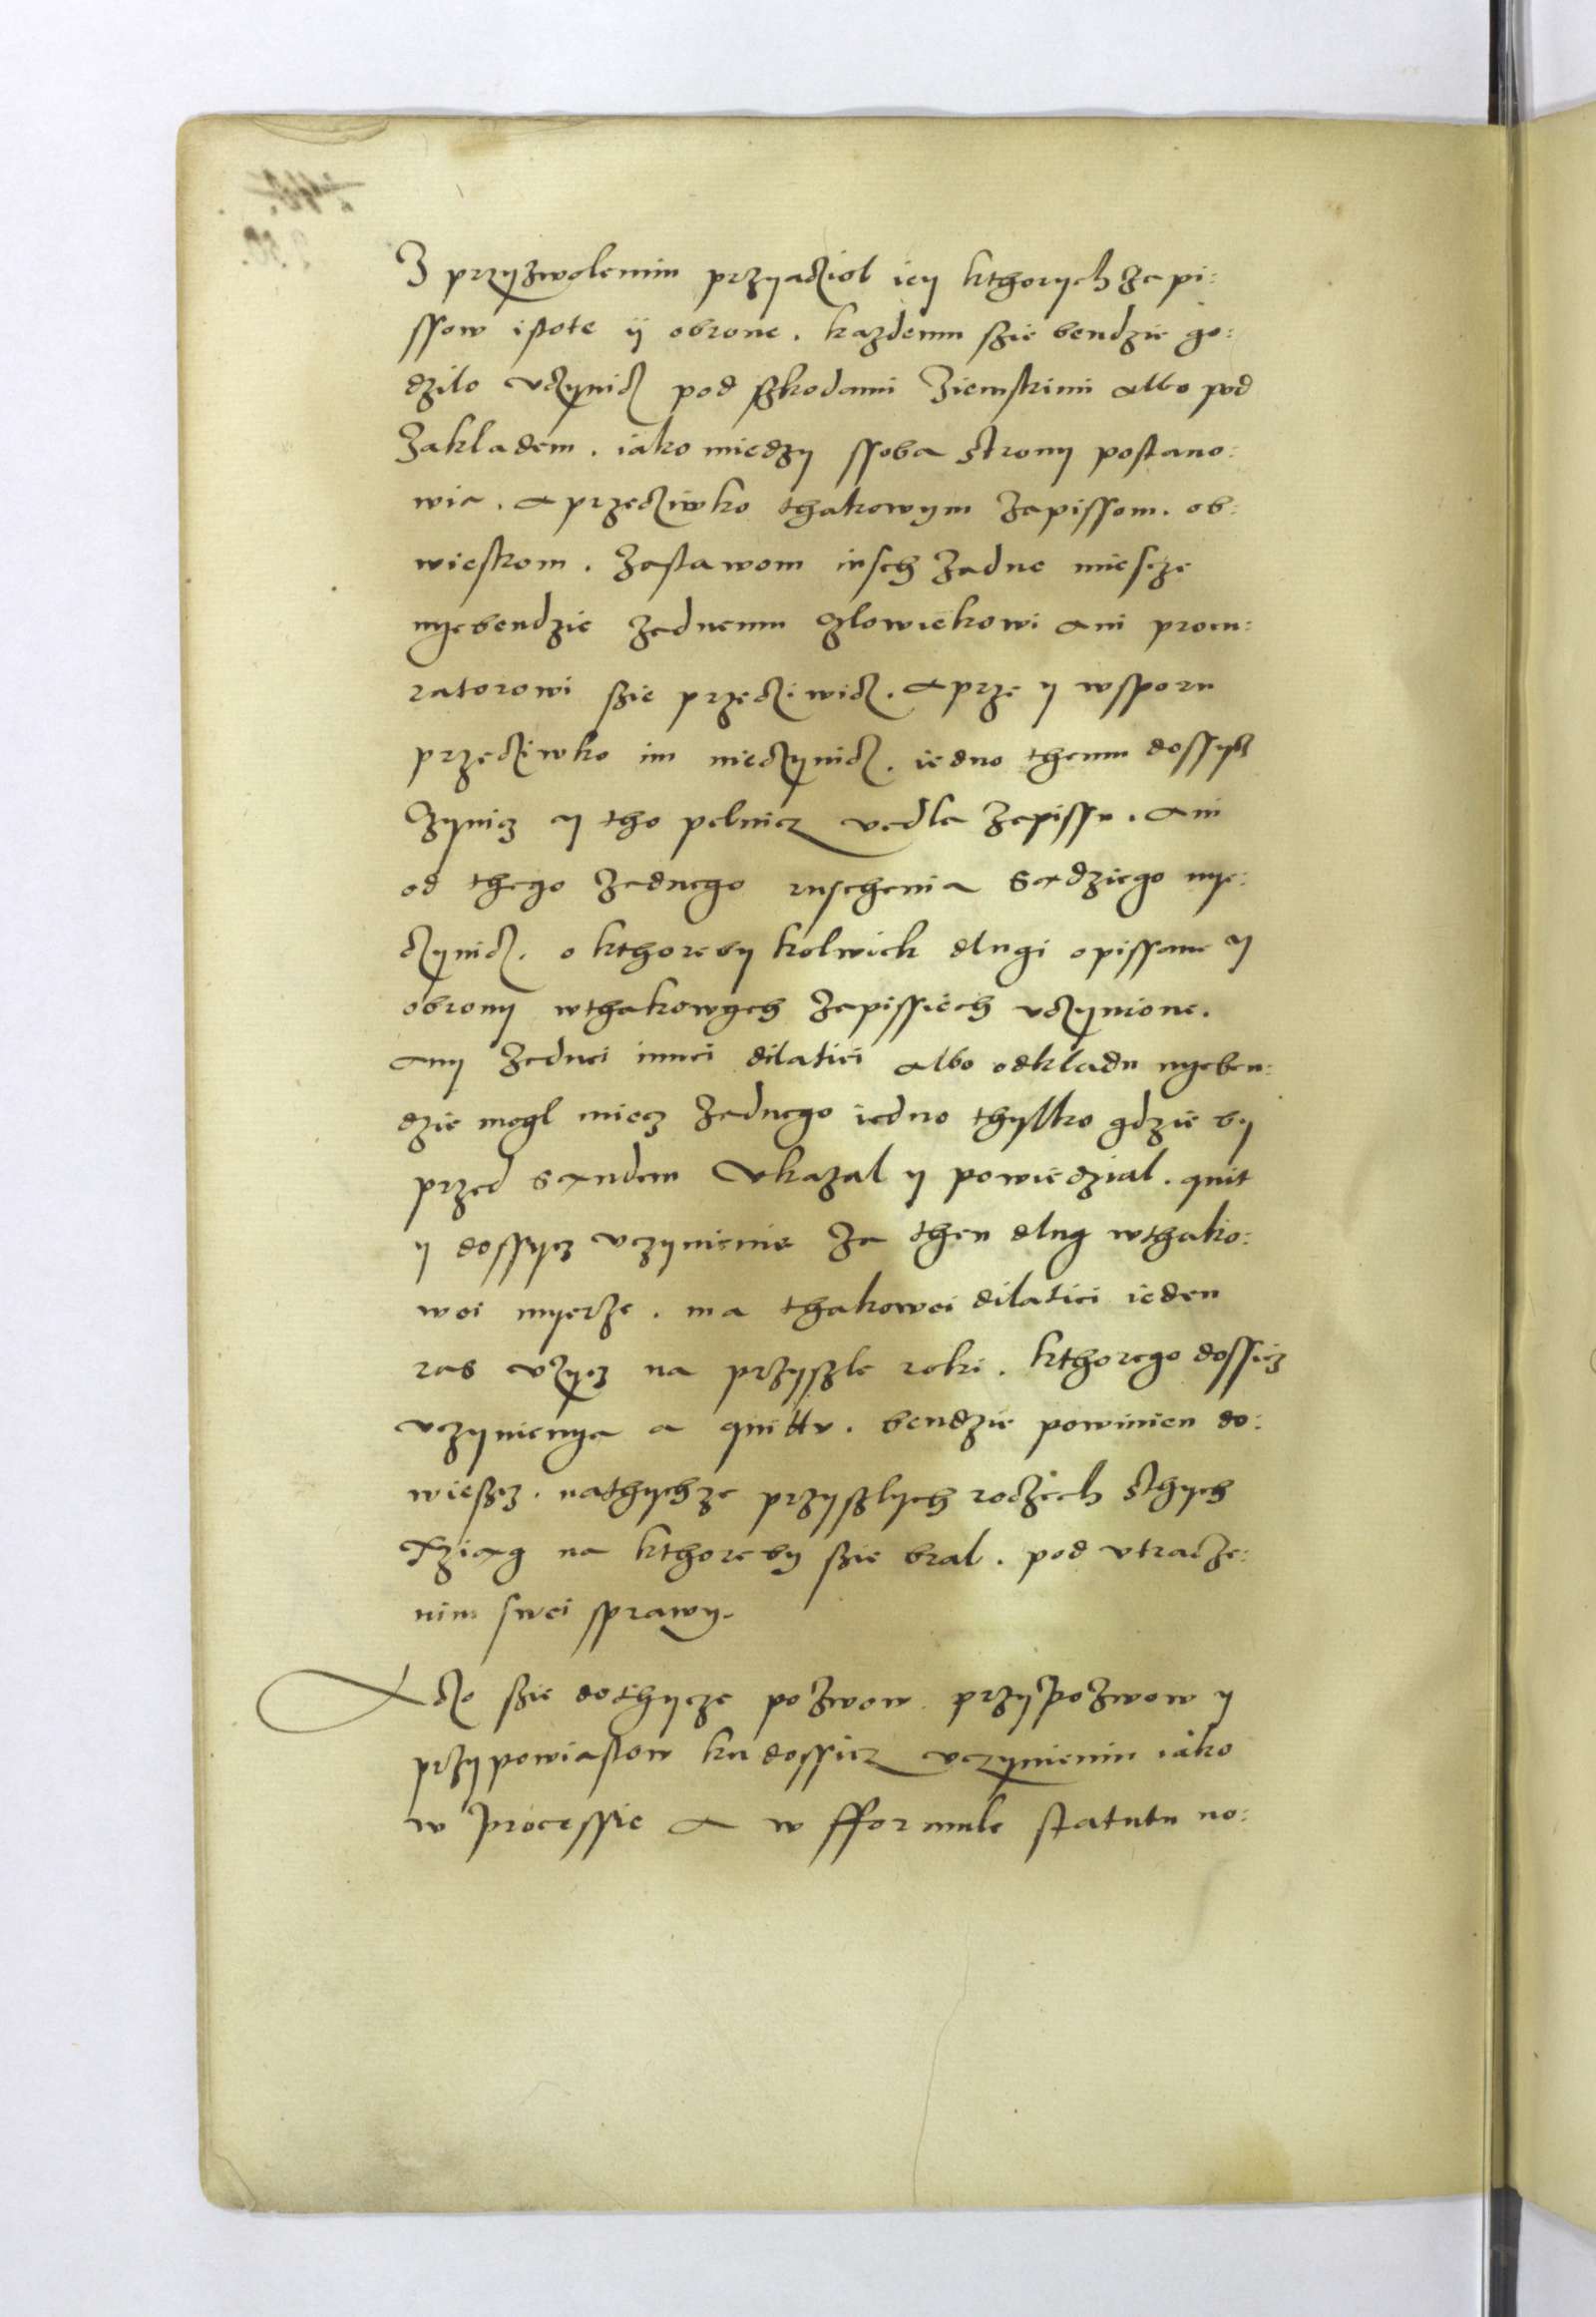 Z przyzwolenim przyacziol iey kthorych zapi:
ssow istote ÿ obrone. kazdemu szie bendzie go:
dzilo vczynicz pod szkodami Ziemskimi albo pod
Zakladem. iako miedzy ssoba strony postano:
wia. a przecziwko thakowym zapissom. ob:
wieskom. zastawom insch zadne miescze
nyebendzie zadnemu czlowiekowi ani procu:
ratorowi szie przecziwicz. a prze y wsporu
przecziwko im nieczynicz. iedno themu dossycz
czynicz y tho pelnicz vedla zapissu. ani
od thego zadnego ruschenia sadziego nye:
czynicz. o kthoreby kolwiek dlugi opissane y
obrony wthakowych zapissiech vczynione.
any zadnei innei dilatiei albo odkladu nyeben:
dzie mogl miecz zadnego iedno thylko gdzie by
przed sandem vkazal y powiedzial. quit
y dossycz vczynienie za then dlug wthako:
woi myerze. ma thakowei dilatiei ieden
ras vzycz na przyszle roki. kthorego dossicz
vczynienya a quittu. bendzie powinien do:
wieszcz. nathychze przyszlych roczech sthych
xziag na kthoreby szie bral. pod vtracze:
nim swei sprawy.
A czo szie dothycze pozwow przypozwow y
przypowiastow ku dossicz vczynieniu iako
w processie a w fformule statutu no: